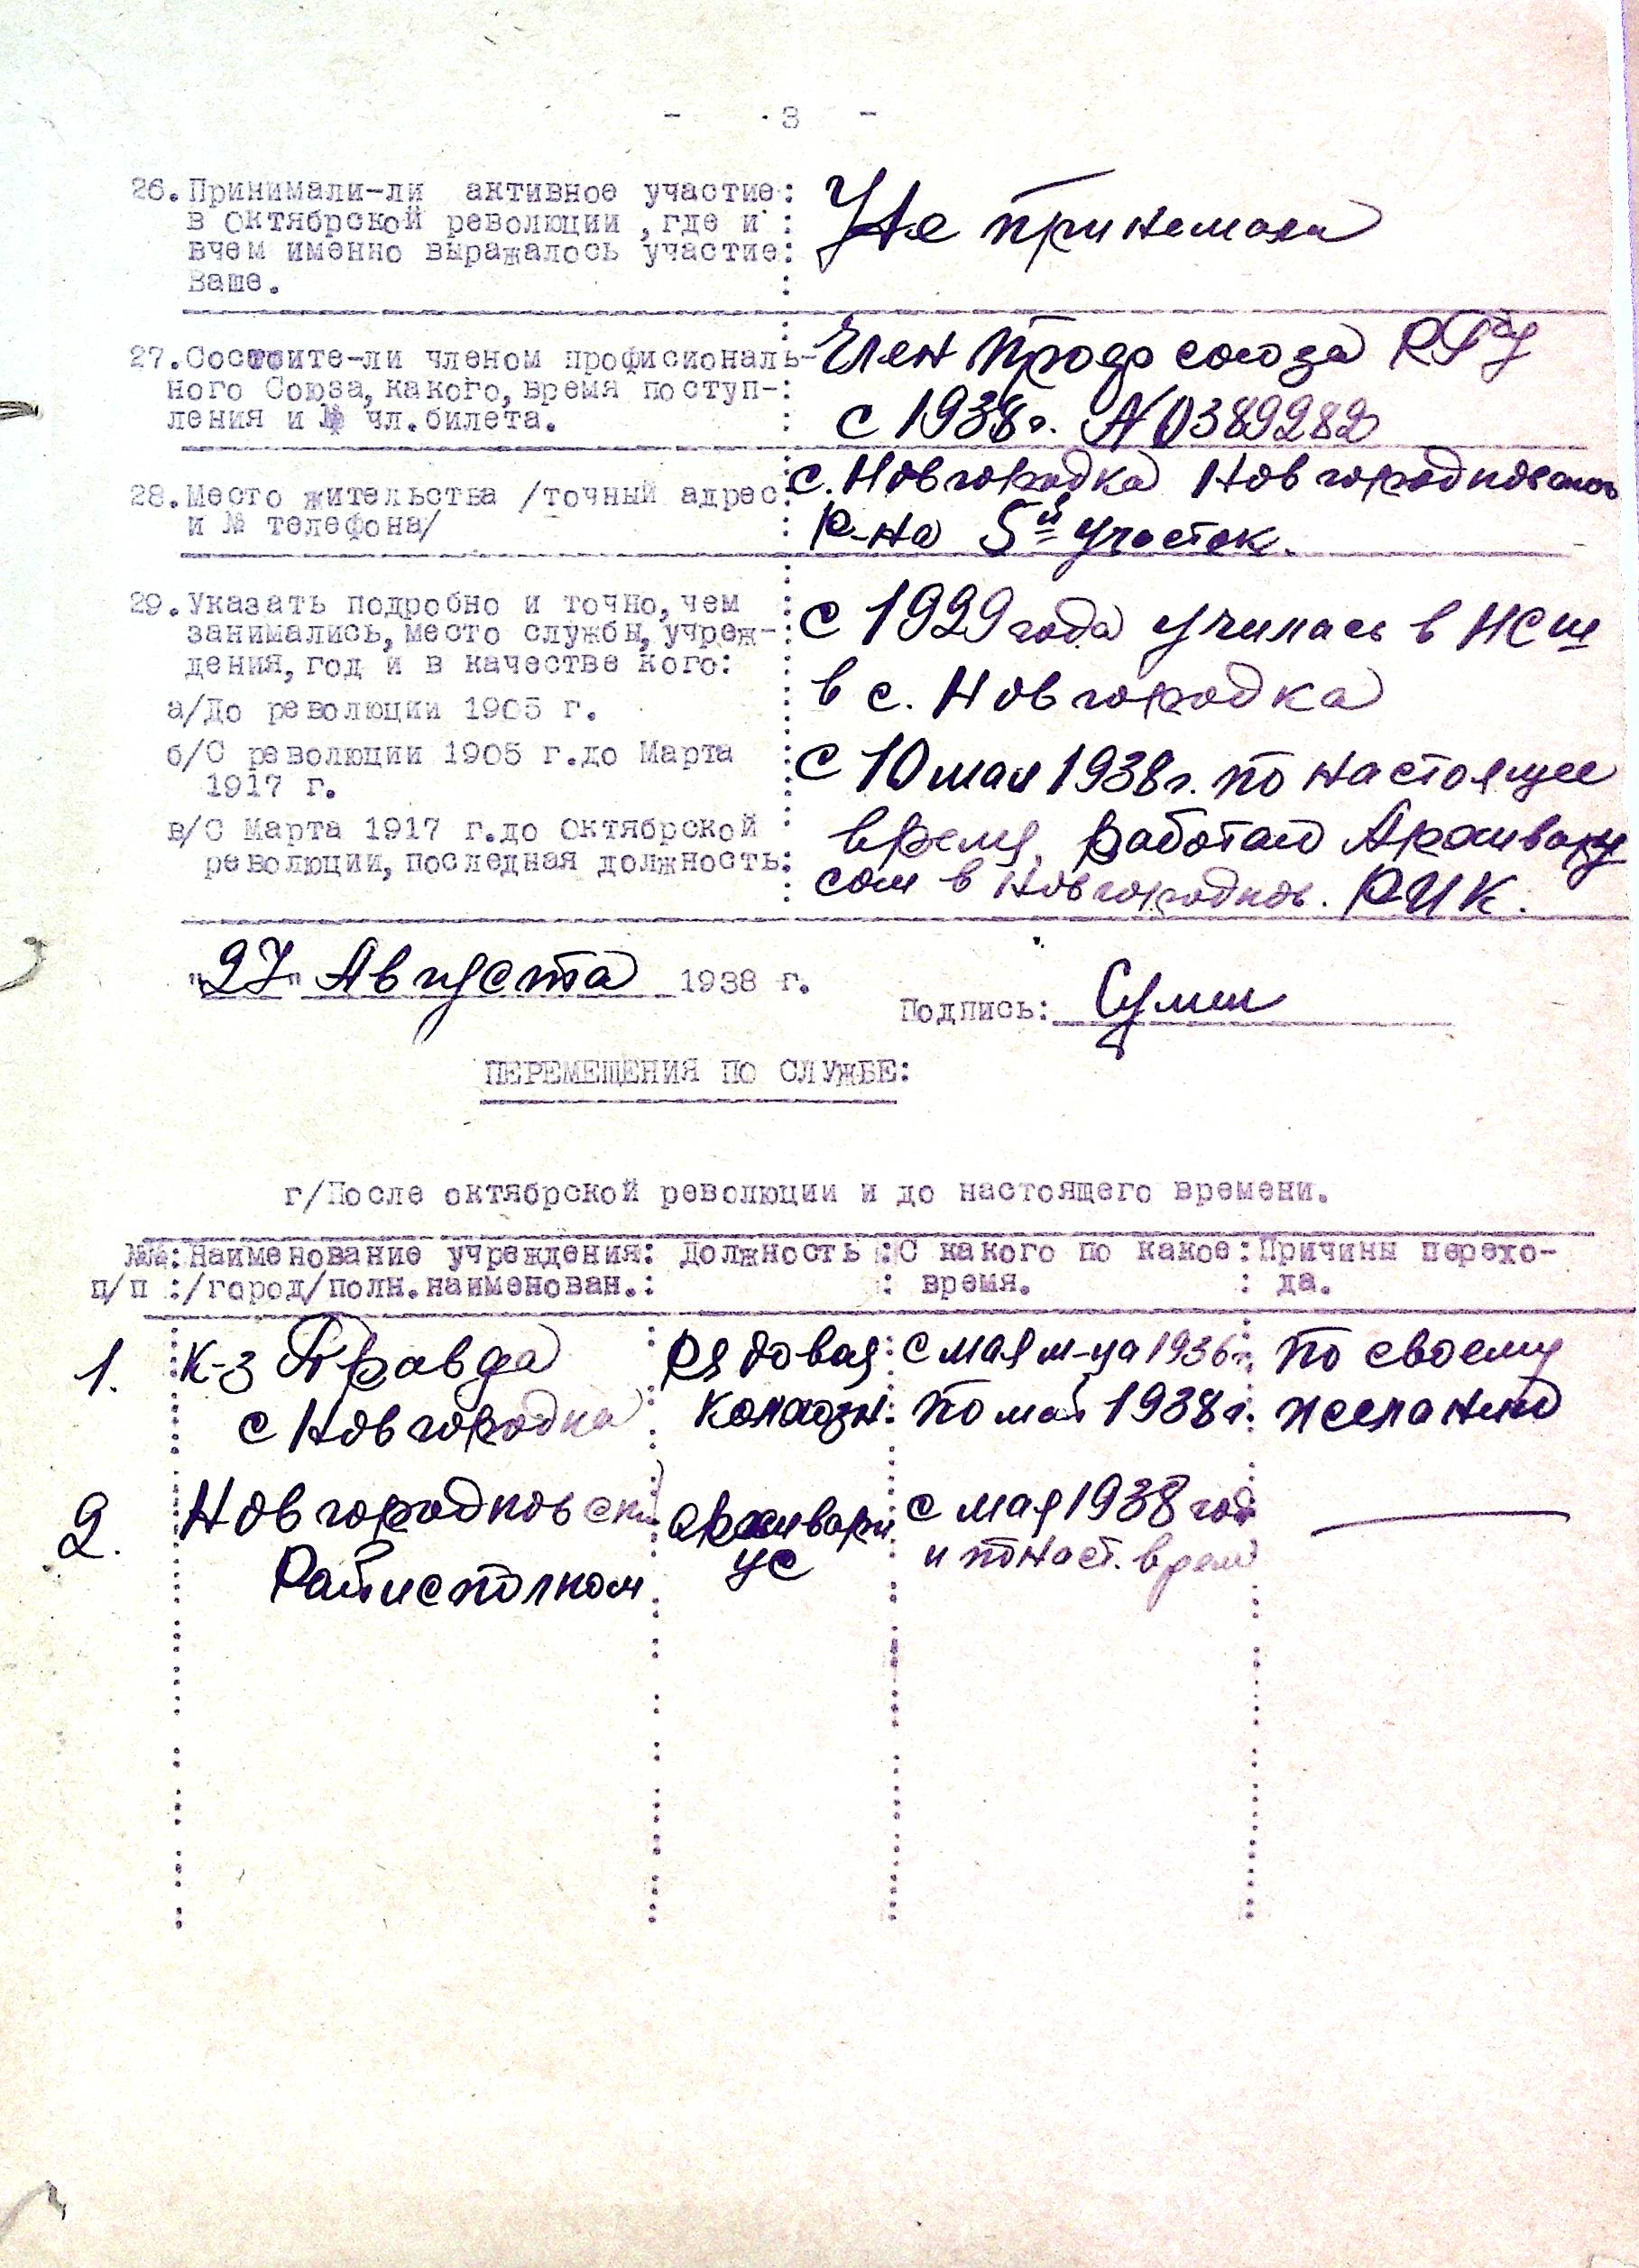 - 3 -
26. Принимали-ли активное участие: Не принемала
в октябрской революции, где и :
вчем именно выражалось участие:
Ваше. :
27. Состоите-ли членом профисиональ- Член Проф союза
ного Союза, какого, время поступ-: с 1938 г. N 0389282
ления и № чл. билета. :
28. Место жительства /точный адрес: с. Новгородка
и № телефона/ : р-на 5й участок.
29. Указать подробно и точно, чем : с 1929 года училась в НСШ
занимались, место службы, учреж-: в с. Новгородка
дения, год и в качестве кого: :
а/До революции 1905 г. :
б/С революции 1905 г. до Марта : с 10 мая 1938 г. по настоящее
1917 г. :
в/С Марта 1917 г. до Октябрской : время. работаю Архивариу
революции, последная должность: сом в Новгородков. РИК.
"27" Августа 1938 г.
Подпись:
ПЕРЕМЕЩЕНИЯ ПО СЛУЖБЕ:
г/После октябрской революции и до настоящего времени.
№№: Наименование учреждения: Должность : С какого по какое: Причины перехо-
п/п :/город/полн. наименован.: : время. : да.
1. к-з Правда рядовая с мая м-ца 1936 г. по своему
с Новгородка колхозн. по май 1938 г. желанию
2. Новгородковски архивари с мая 1938 год
Райисполком ус и по наст. врем